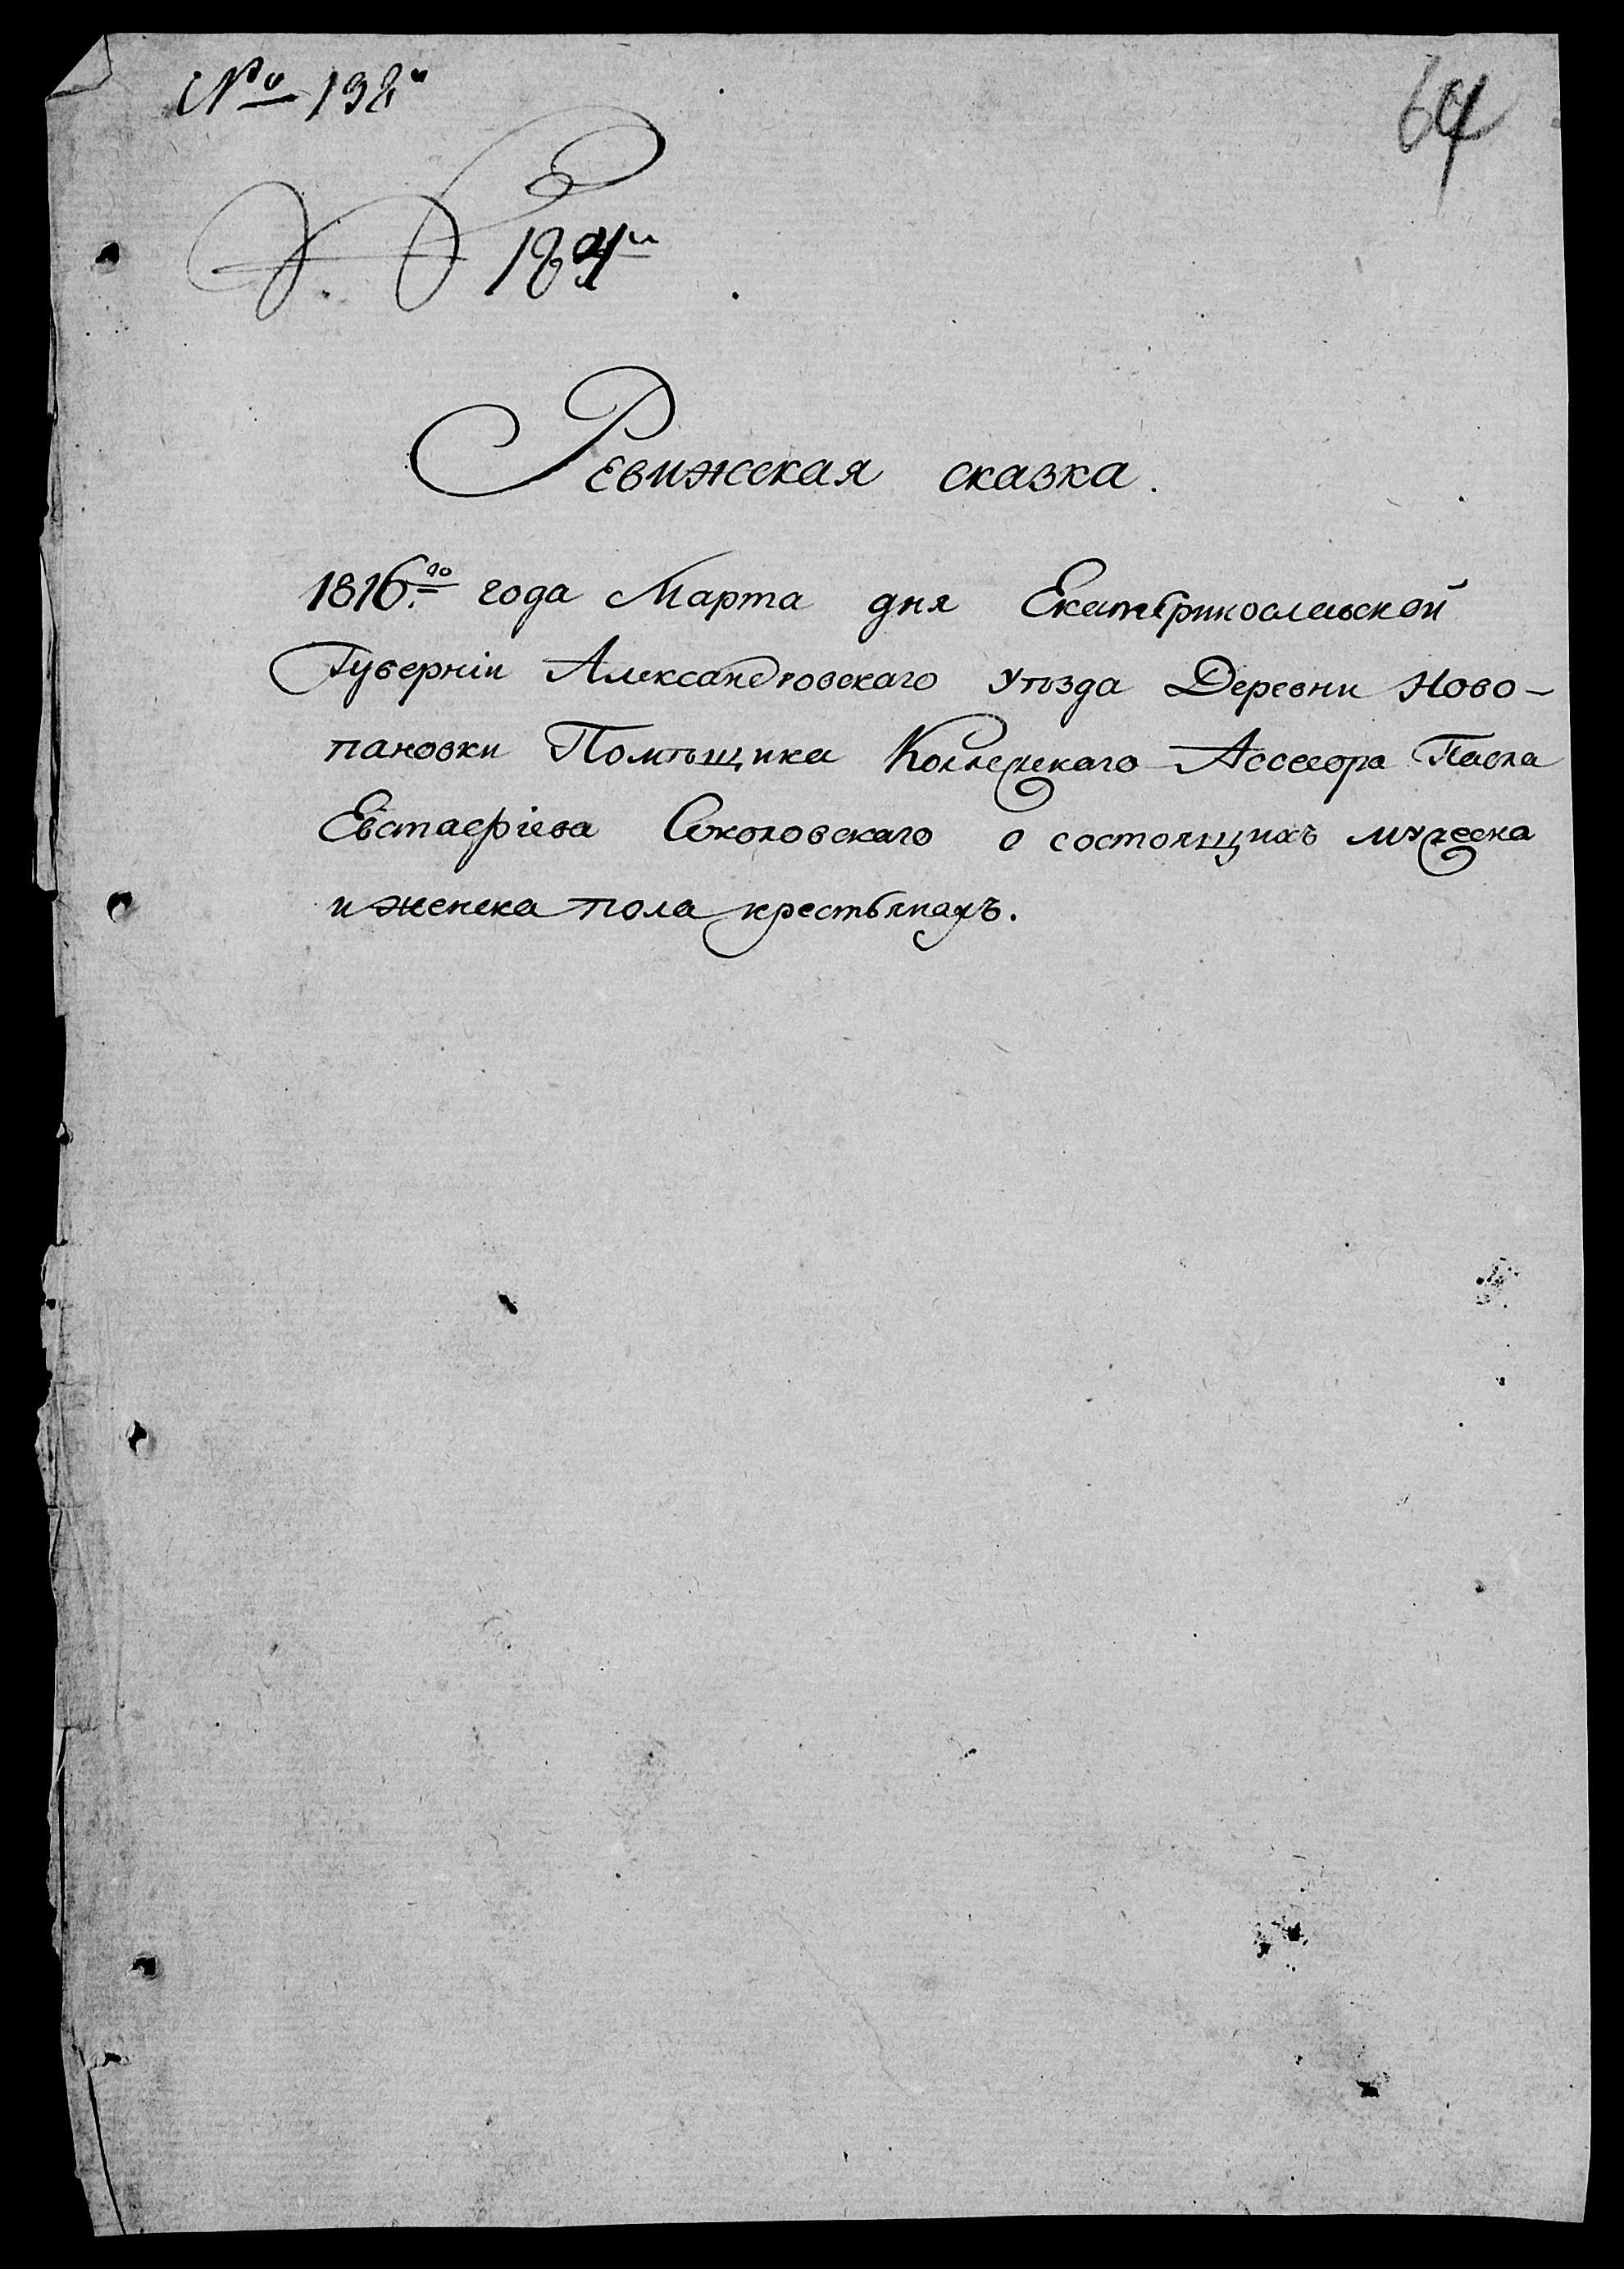 № 198й
64
184й
Ревижская сказка.
1816.го года Марта дня Екатеринославской
Губерніи Александровскаго уѣзда Деревни Ново-
пановки Помѣщика Коллежскаго Ассесора Павла
Евстафіева Соколовскаго о состоящихъ мужеска
и женска пола крестьянахъ.